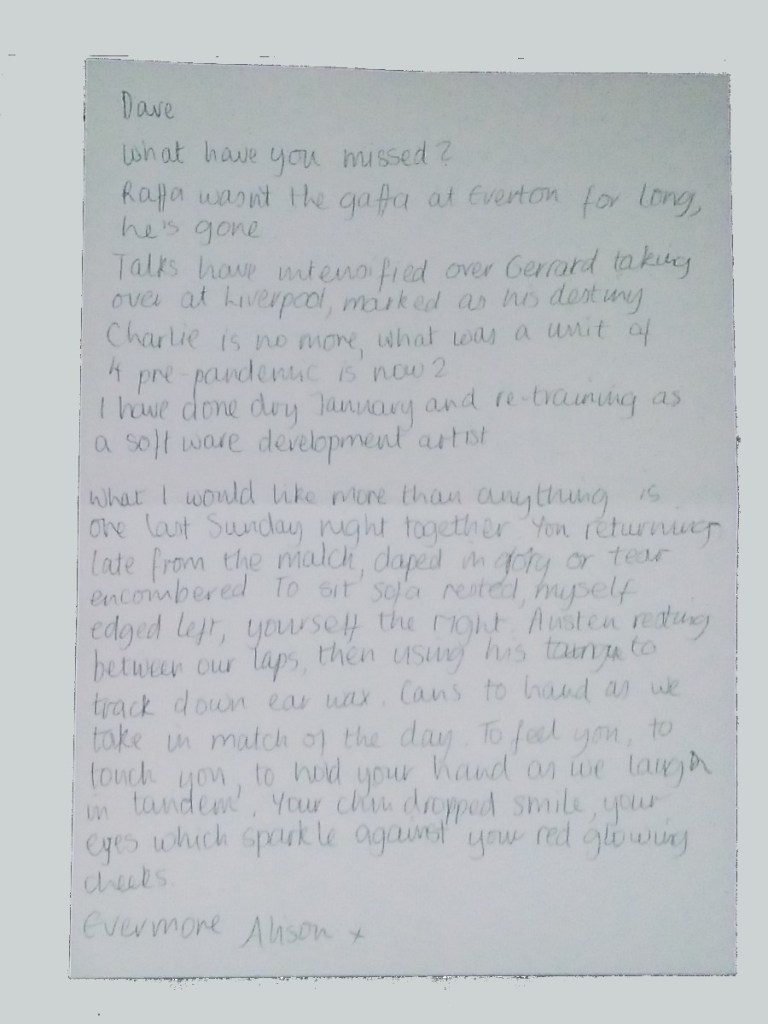 Dave
What have you missed?
Raffa wasn't the gaffa at Everton for long,
he's gone
Talks have intensified over Gerrard taking
over at Liverpool, marked as his destiny
Charlie is no more, what was a unit of
4 pre-pandemic is now 2
I have done dry January and re-training as
a software development artist
What I would like more than anything is
one last Sunday night together. You returning
late from the match, daped in glory or tear
encombered To sit sofa rested, myself
edged left, yourself the right. Austen resting
between our laps, then using his to
track down ear wax. Cans to hand as we
take in match of the day. To feel you, to
touch you, to hold your hand as we laugh
in tandem. Your chin dropped smile, your
eyes which sparkle against your red glowing
cheeks.
Evermore Alison x